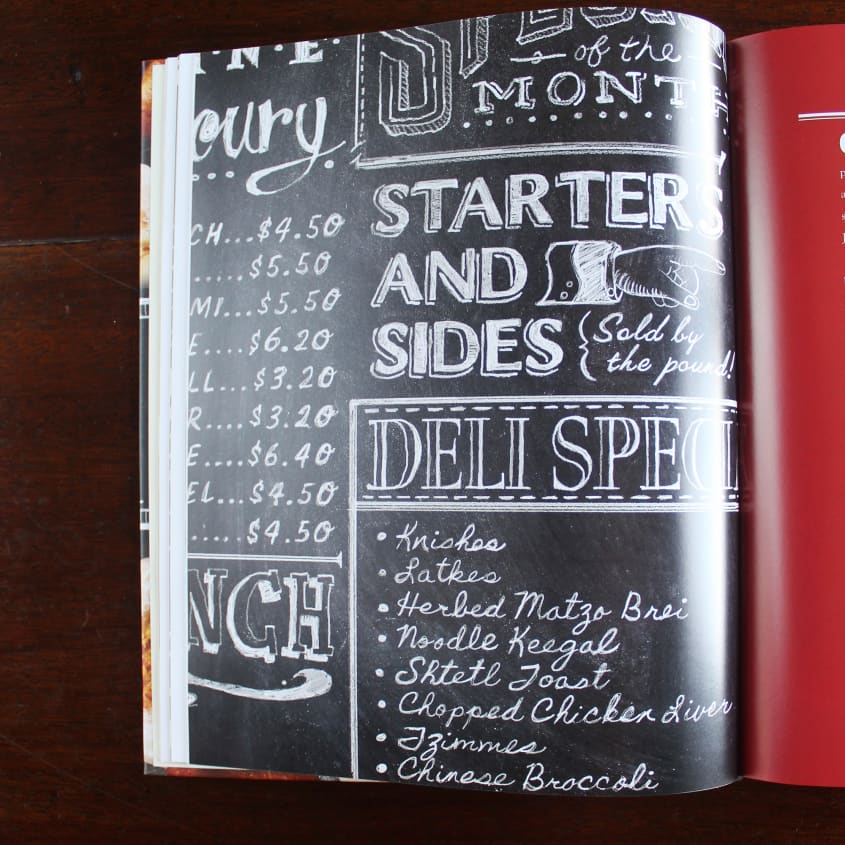 oury
CH...$4.50
.....$5.50
MI...$5.50
E....$6.20
LL...$3.20
R....$3.20
E....$6.40
EL...$4.50
.....$4.50
NCH
of the
MONTH
STARTERS
AND
SIDES {Sold by
the pound!
DELI SPECI
• Knishes
• Latkes
• Herbed Matzo Brei
• Noodle Keegal
• Shtetl Toast
• Chopped Chicken Liver
• Tzimmes
• Chinese Broccoli